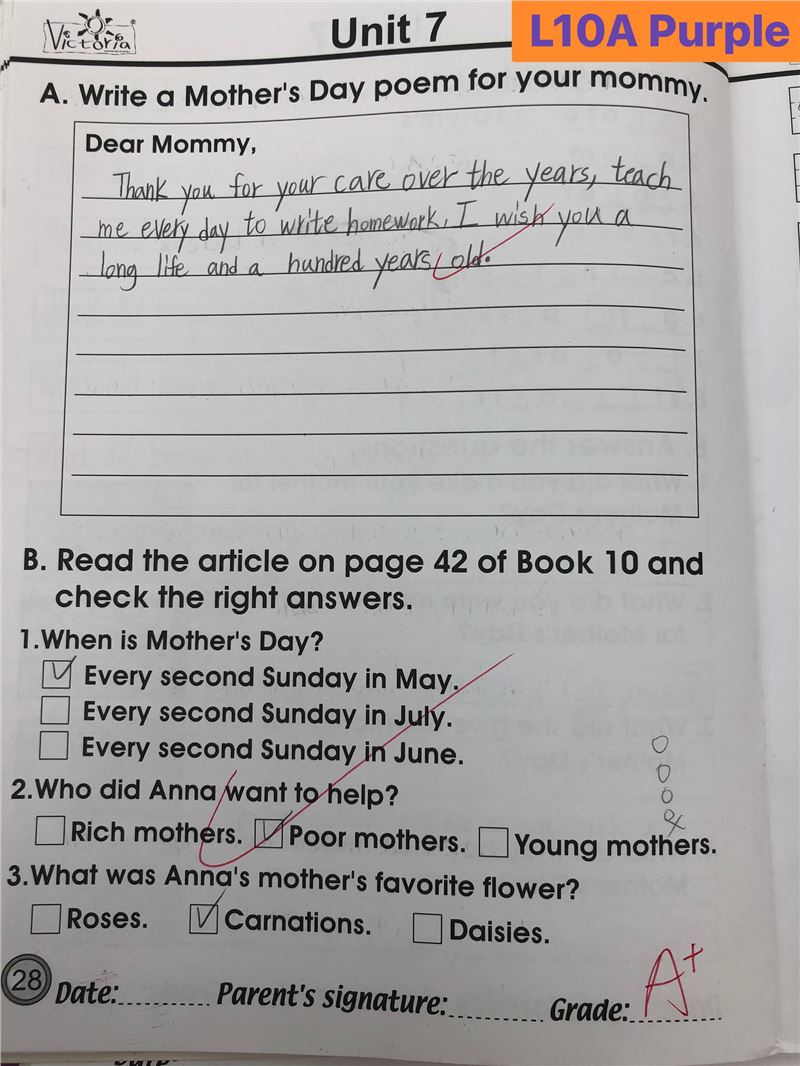 Victoria
Unit 7
L10A Purple
A. Write a Mother's Day poem for your mommy.
Dear Mommy,
Thank you for your care over the years, teach
me every day to write homework, I wish you a
long life and a hundred years old.
B. Read the article on page 42 of Book 10 and
check the right answers.
1.When is Mother's Day?
Every second Sunday in May.
Every second Sunday in July.
Every second Sunday in June.
2.Who did Anna want to help?
Rich mothers. Poor mothers. Young mothers.
3.What was Anna's mother's favorite flower?
Roses. Carnations. Daisies.
28 Date:.......... Parent's signature:.......... Grade:.......... A+